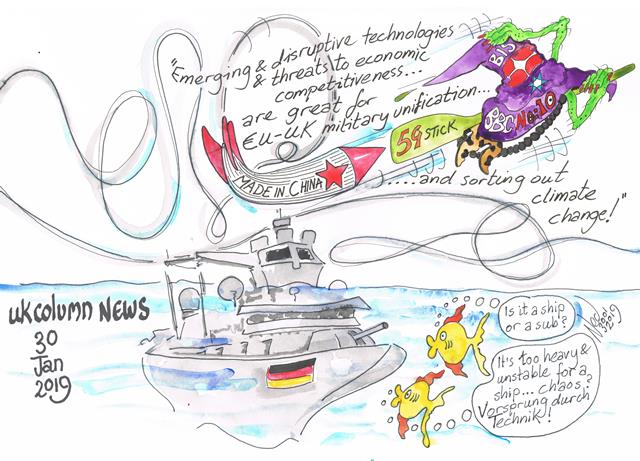 "Emerging & disruptive technologies
& threats to economic
competitiveness...
are great for
€U-UK military unification...
5G STICK
BBC No:10
MADE IN CHINA
....and sorting out
climate
change!"
ukcolumn NEWS
30
Jan
2019
Is it a ship
or a sub?
It's too heavy &
unstable for a
ship... chaos?
Vorsprung durch
Technik!